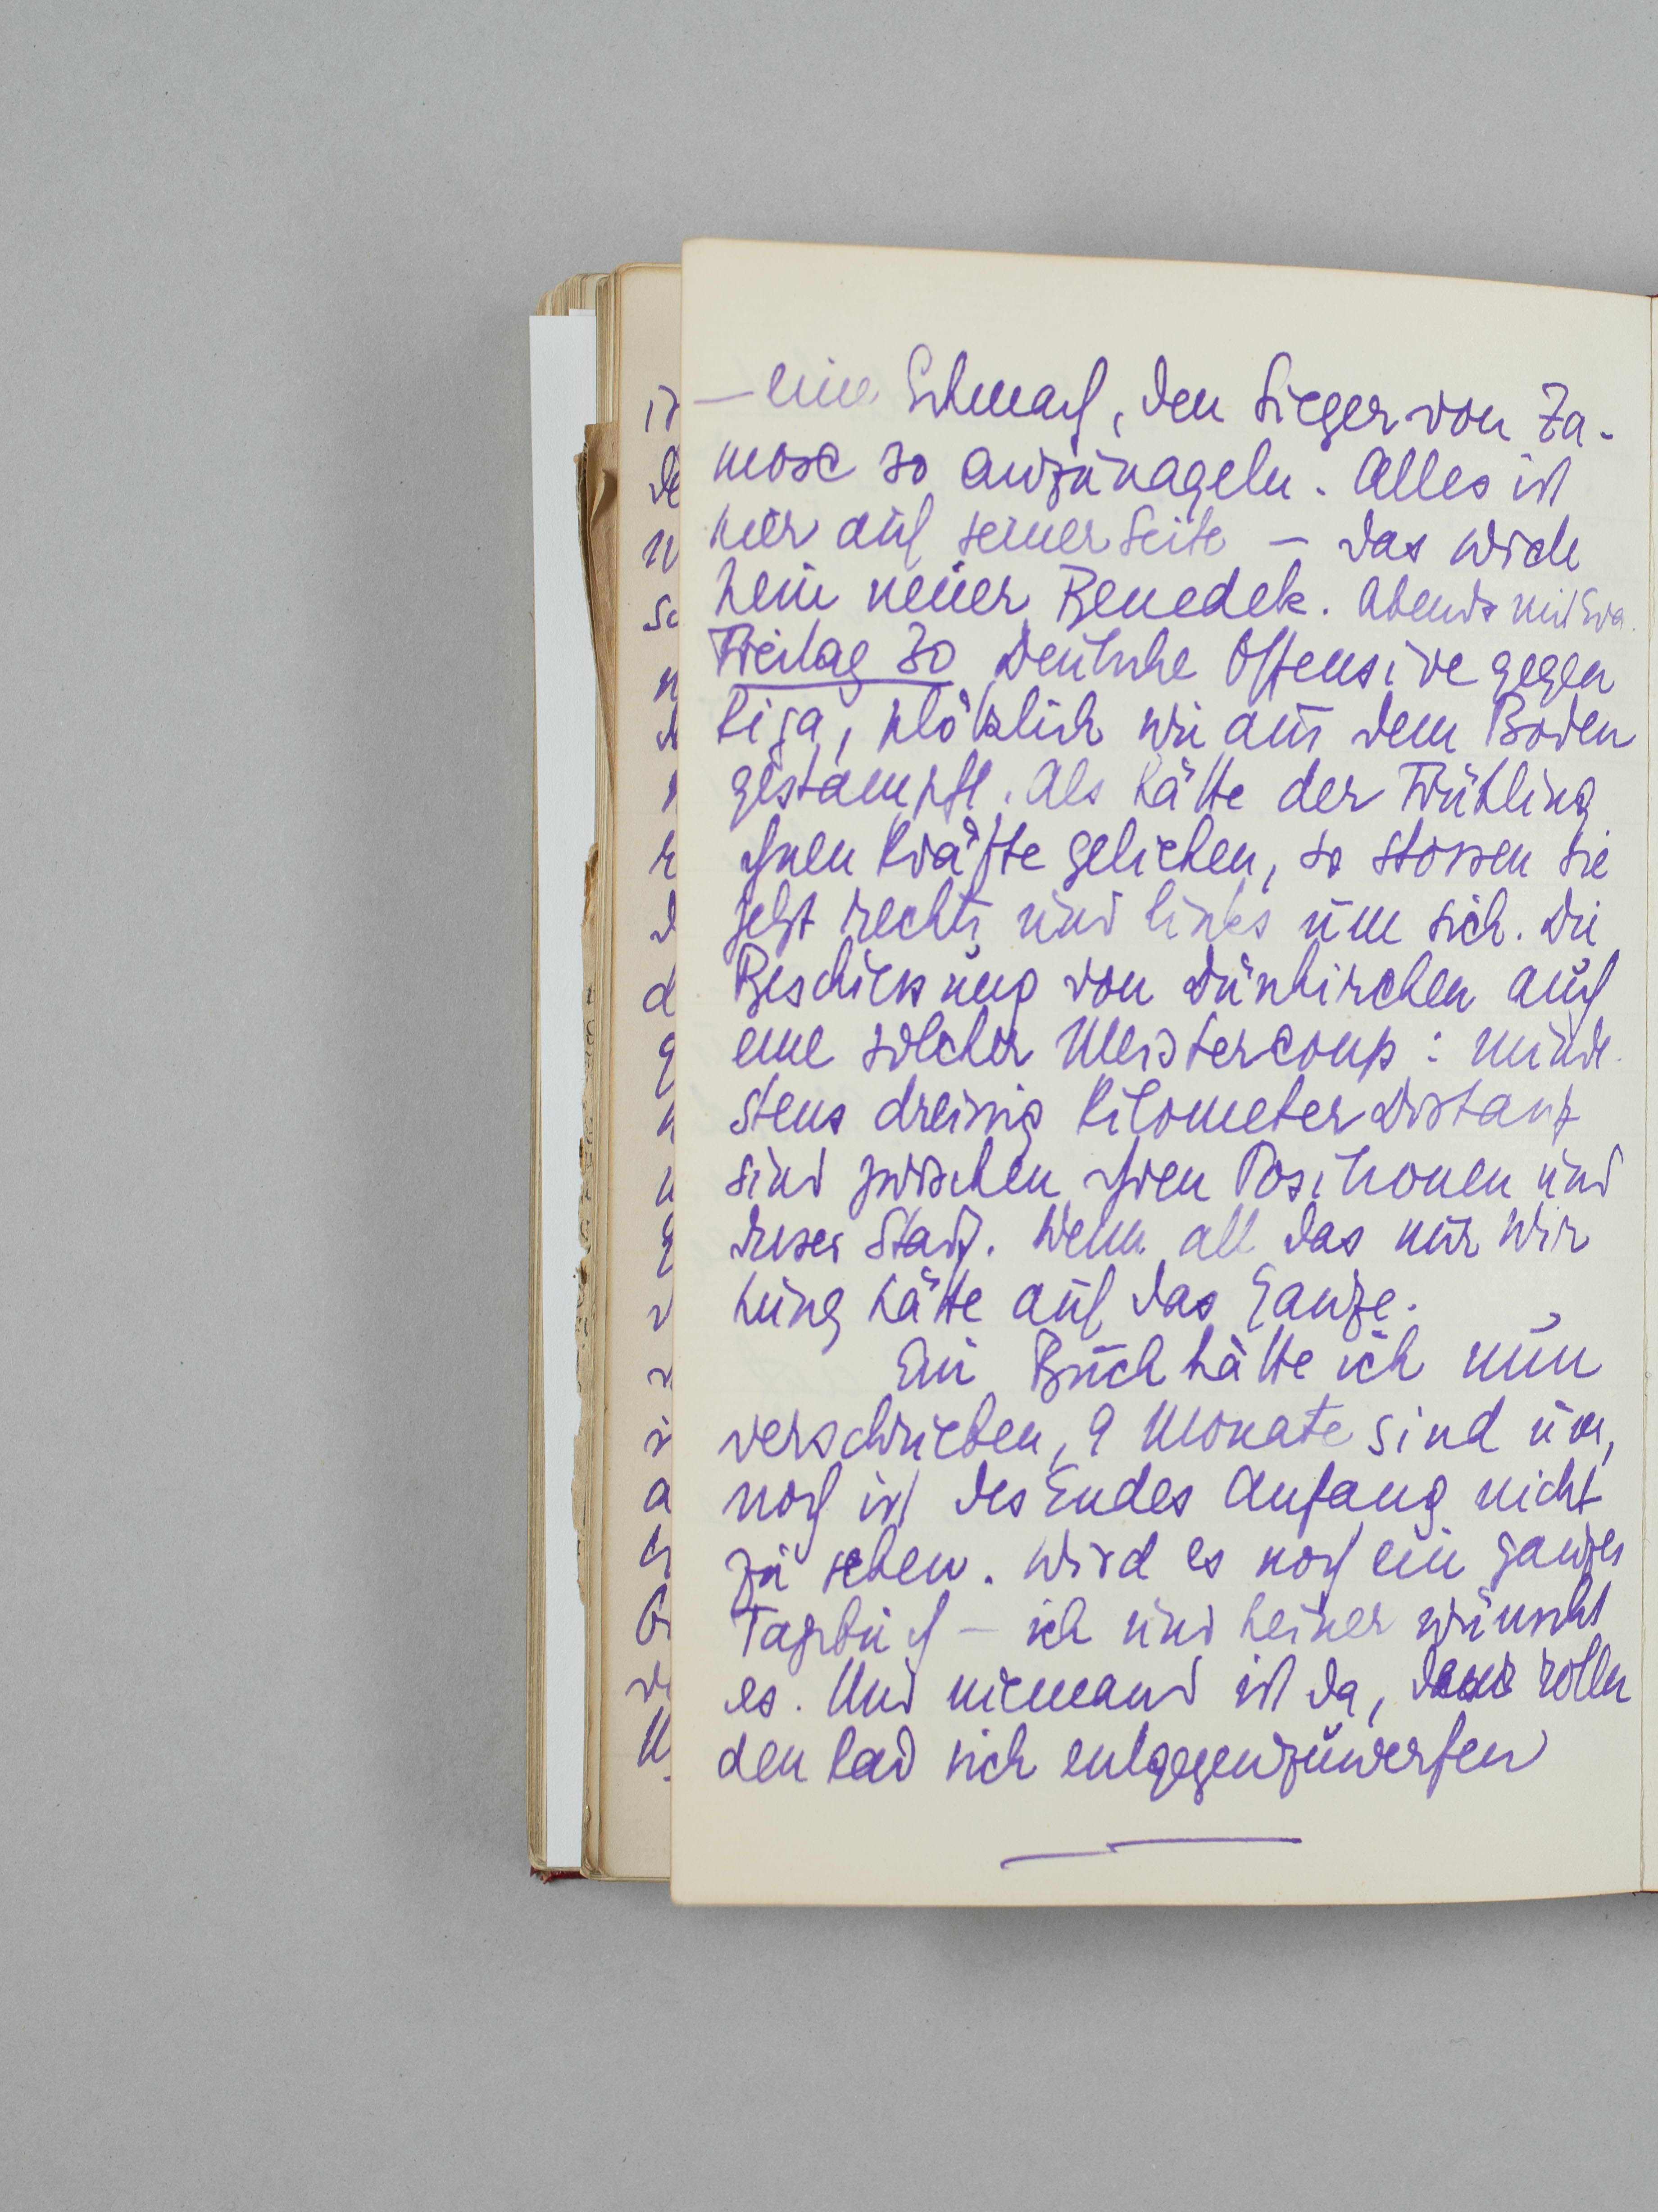 — eine Schmach, den Sieger von Za-
mosc so anzunageln. Alles ist
hier auf seiner Seite — das
kein neuer Benedek. Abends mit
Freitag 30 Deutsche Offensive gegen
Riga, plötzlich wie aus dem Boden
gestampft. Als hätte der Frühling
Ihnen Kräfte geliehen, so stossen sie
jetzt rechts und links um sich. Die
Beschiessung von Dünkirchen auch
eine solcher Meistercoups: minde-
stens dreissig Kilometer Distanz
sind zwischen Ihren Positionen und
dieser Stadt. Wenn all das nur Wir
kung hätte auf das Ganze.
Ein Buch hätte ich nun
verschrieben, 9 Monate sind um,
noch ist des Endes Anfang nicht
zu sehen. Wird es noch ein ganzes
Tagebuch — ich und keiner wünscht
es. Und niemand ist da, dem rollen
den Rad sich entgegenzuwerfen